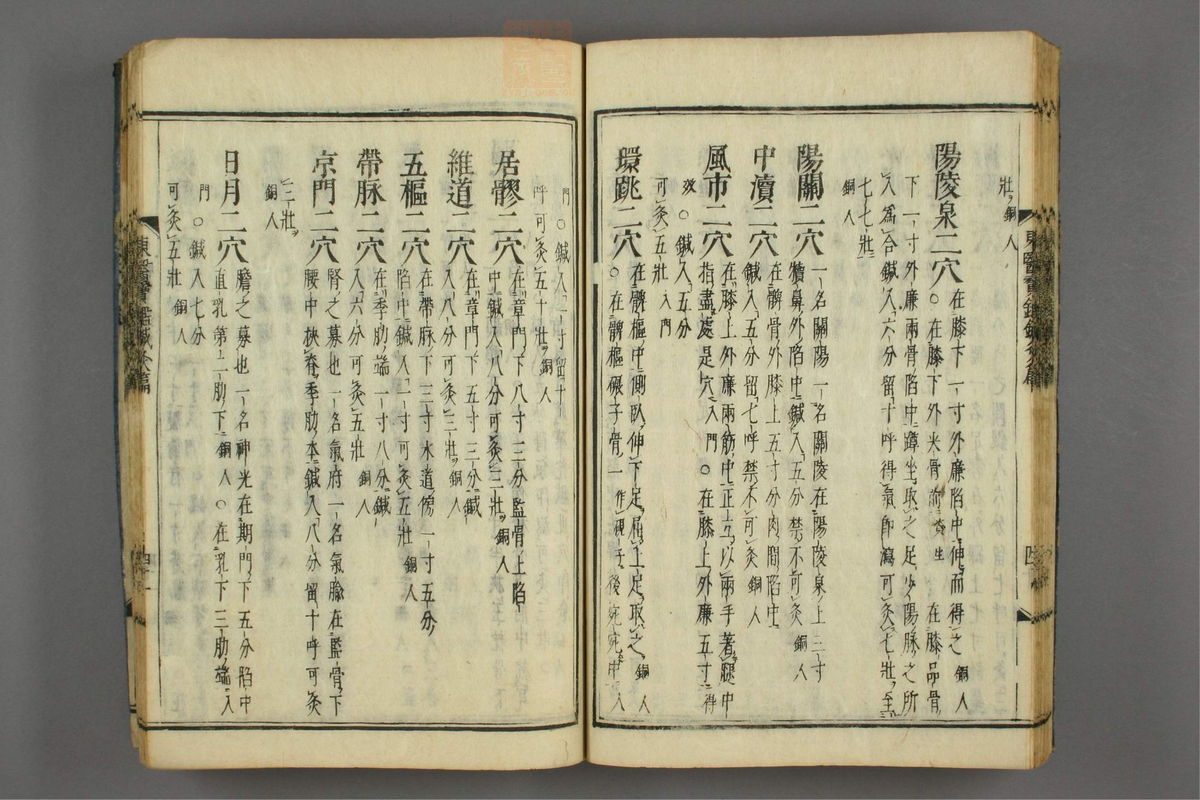 壯銅人
陽陵泉二穴在膝下一寸外廉陷中伸而得之銅人
○在膝下外尖骨前資生在膝品骨
下一寸外廉兩骨陷中蹲坐取之足少陽脉之所
入爲合鍼入六分留十呼得氣即瀉可灸七壯至
七七壯
銅人
陽關二穴一名關陽一名關陵在陽陵泉上三寸
犢鼻外陷中鍼入五分禁不可灸銅人
中瀆二穴在髀骨外膝上五寸分肉間陷中
鍼入五分留七呼禁不可灸銅人
風市二穴在膝上外廉兩筋中正立以兩手著腿中
指盡處是穴入門○在膝上外廉五寸得
效○鍼入五分
可灸五壯入門
環跳二穴在髀樞中側臥伸下足屈上足取之銅人
○在髀樞碾子骨一作硯子後宛宛中入
門○鍼入一寸留十
呼可灸五十壯銅人
居髎二穴在章門下八寸三分監骨上陷
中鍼入八分可灸三壯銅人
維道二穴在章門下五寸三分鍼
入八分可灸三壯銅人
五樞二穴在帶脉下三寸水道傍一寸五分
陷中鍼入一寸可灸五壯銅人
帶脉二穴在季肋端一寸八分鍼
入六分可灸五壯銅人
京門二穴腎之募也一名氣府一名氣腧在監骨下
腰中挾脊季肋本鍼入八分留十呼可灸
三壯
銅人
日月二穴膽之募也一名神光在期門下五分陷中
直乳第二肋下銅人○在乳下三肋端入
門○鍼入七分
可灸五壯銅人